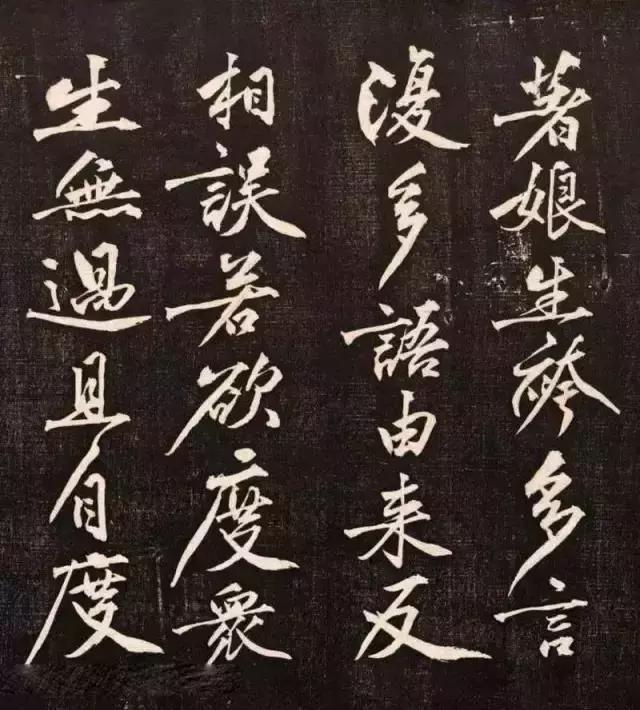 著娘生袴多言
復多語由来反
相誤若欲度衆
生無過且自度